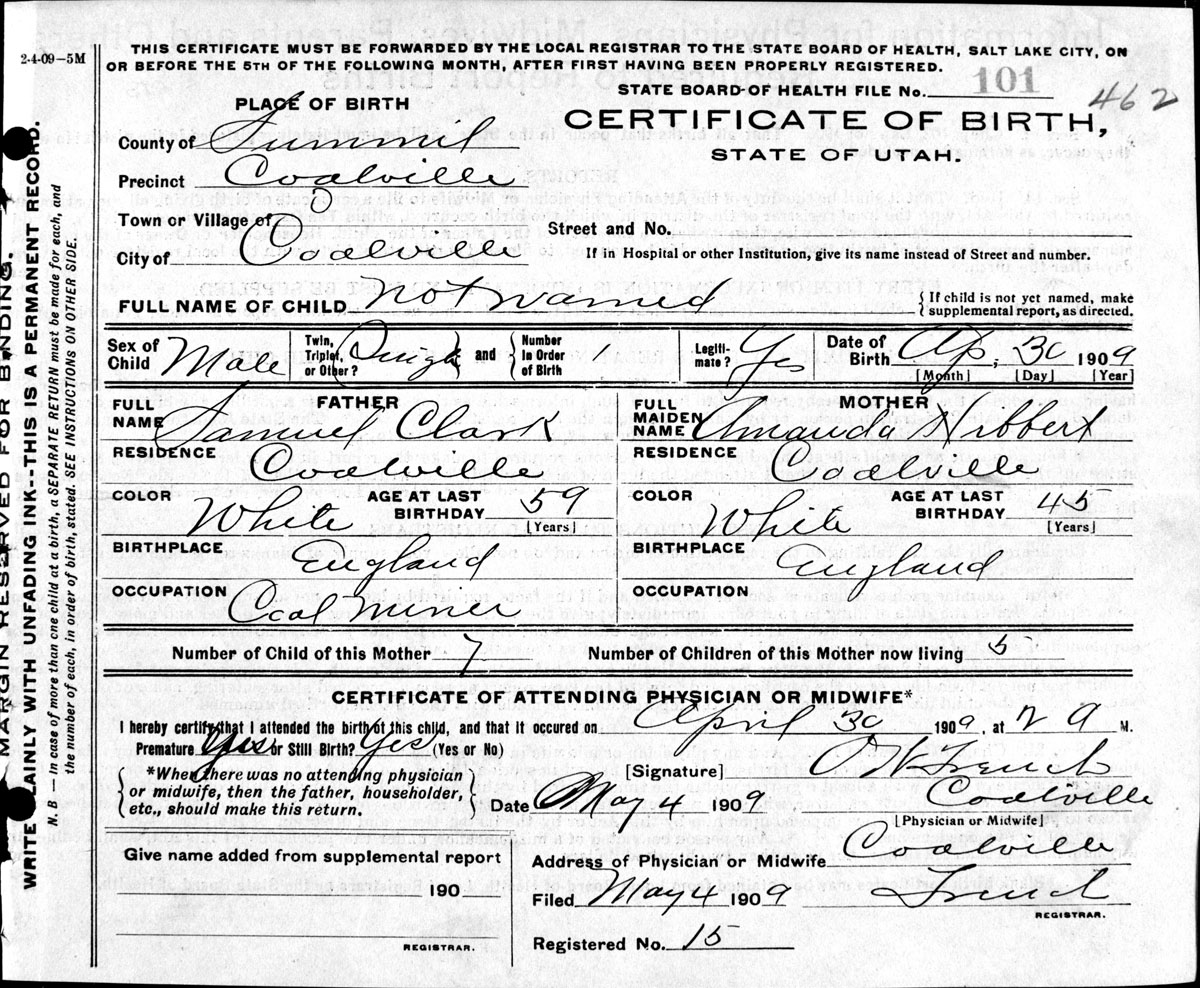 2-4-09-5M
THIS CERTIFICATE MUST BE FORWARDED BY THE LOCAL REGISTRAR TO THE STATE BOARD OF HEALTH, SALT LAKE CITY, ON
OR BEFORE THE 5TH OF THE FOLLOWING MONTH, AFTER FIRST HAVING BEEN PROPERLY REGISTERED.
STATE BOARD OF HEALTH FILE No. 101
462
PLACE OF BIRTH
CERTIFICATE OF BIRTH,
STATE OF UTAH.
County of Summit
Precinct Coalville
Town or Village of
Street and No.
City of Coalville
If in Hospital or other Institution, give its name instead of Street and number.
FULL NAME OF CHILD Not named
{If child is not yet named, make supplemental report, as directed.
Sex of Child Male
Twin, Triplet, or Other? and {Number in Order of Birth 1
Legitimate? Yes
Date of Birth Ap, 30 1909
[Month] [Day] [Year]
FATHER
FULL NAME Samuel Clark
RESIDENCE Coalville
COLOR White AGE AT LAST BIRTHDAY 59
[Years]
BIRTHPLACE England
OCCUPATION Coal Miner
MOTHER
FULL MAIDEN NAME Amanda Hibbert
RESIDENCE Coalville
COLOR White AGE AT LAST BIRTHDAY 45
[Years]
BIRTHPLACE England
OCCUPATION
Number of Child of this Mother 7 Number of Children of this Mother now living 5
CERTIFICATE OF ATTENDING PHYSICIAN OR MIDWIFE*
I hereby certify that I attended the birth of this child, and that it occured on April 30 1909, at 2 a M.
Premature Yes or Still Birth? Yes (Yes or No)
{*When there was no attending physician
or midwife, then the father, householder,
etc., should make this return.}
[Signature]
Date May 4 1909 Coalville
[Physician or Midwife]
Address of Physician or Midwife Coalville
Filed May 4 1909
REGISTRAR.
Registered No. 15
Give name added from supplemental report
190
REGISTRAR.
MARGIN RESERVED FOR BINDING.
WRITE PLAINLY WITH UNFADING INK--THIS IS A PERMANENT RECORD.
N. B.—In case of more than one child at a birth, a SEPARATE RETURN must be made for each, and
the number of each, in order of birth, stated. SEE INSTRUCTIONS ON OTHER SIDE.